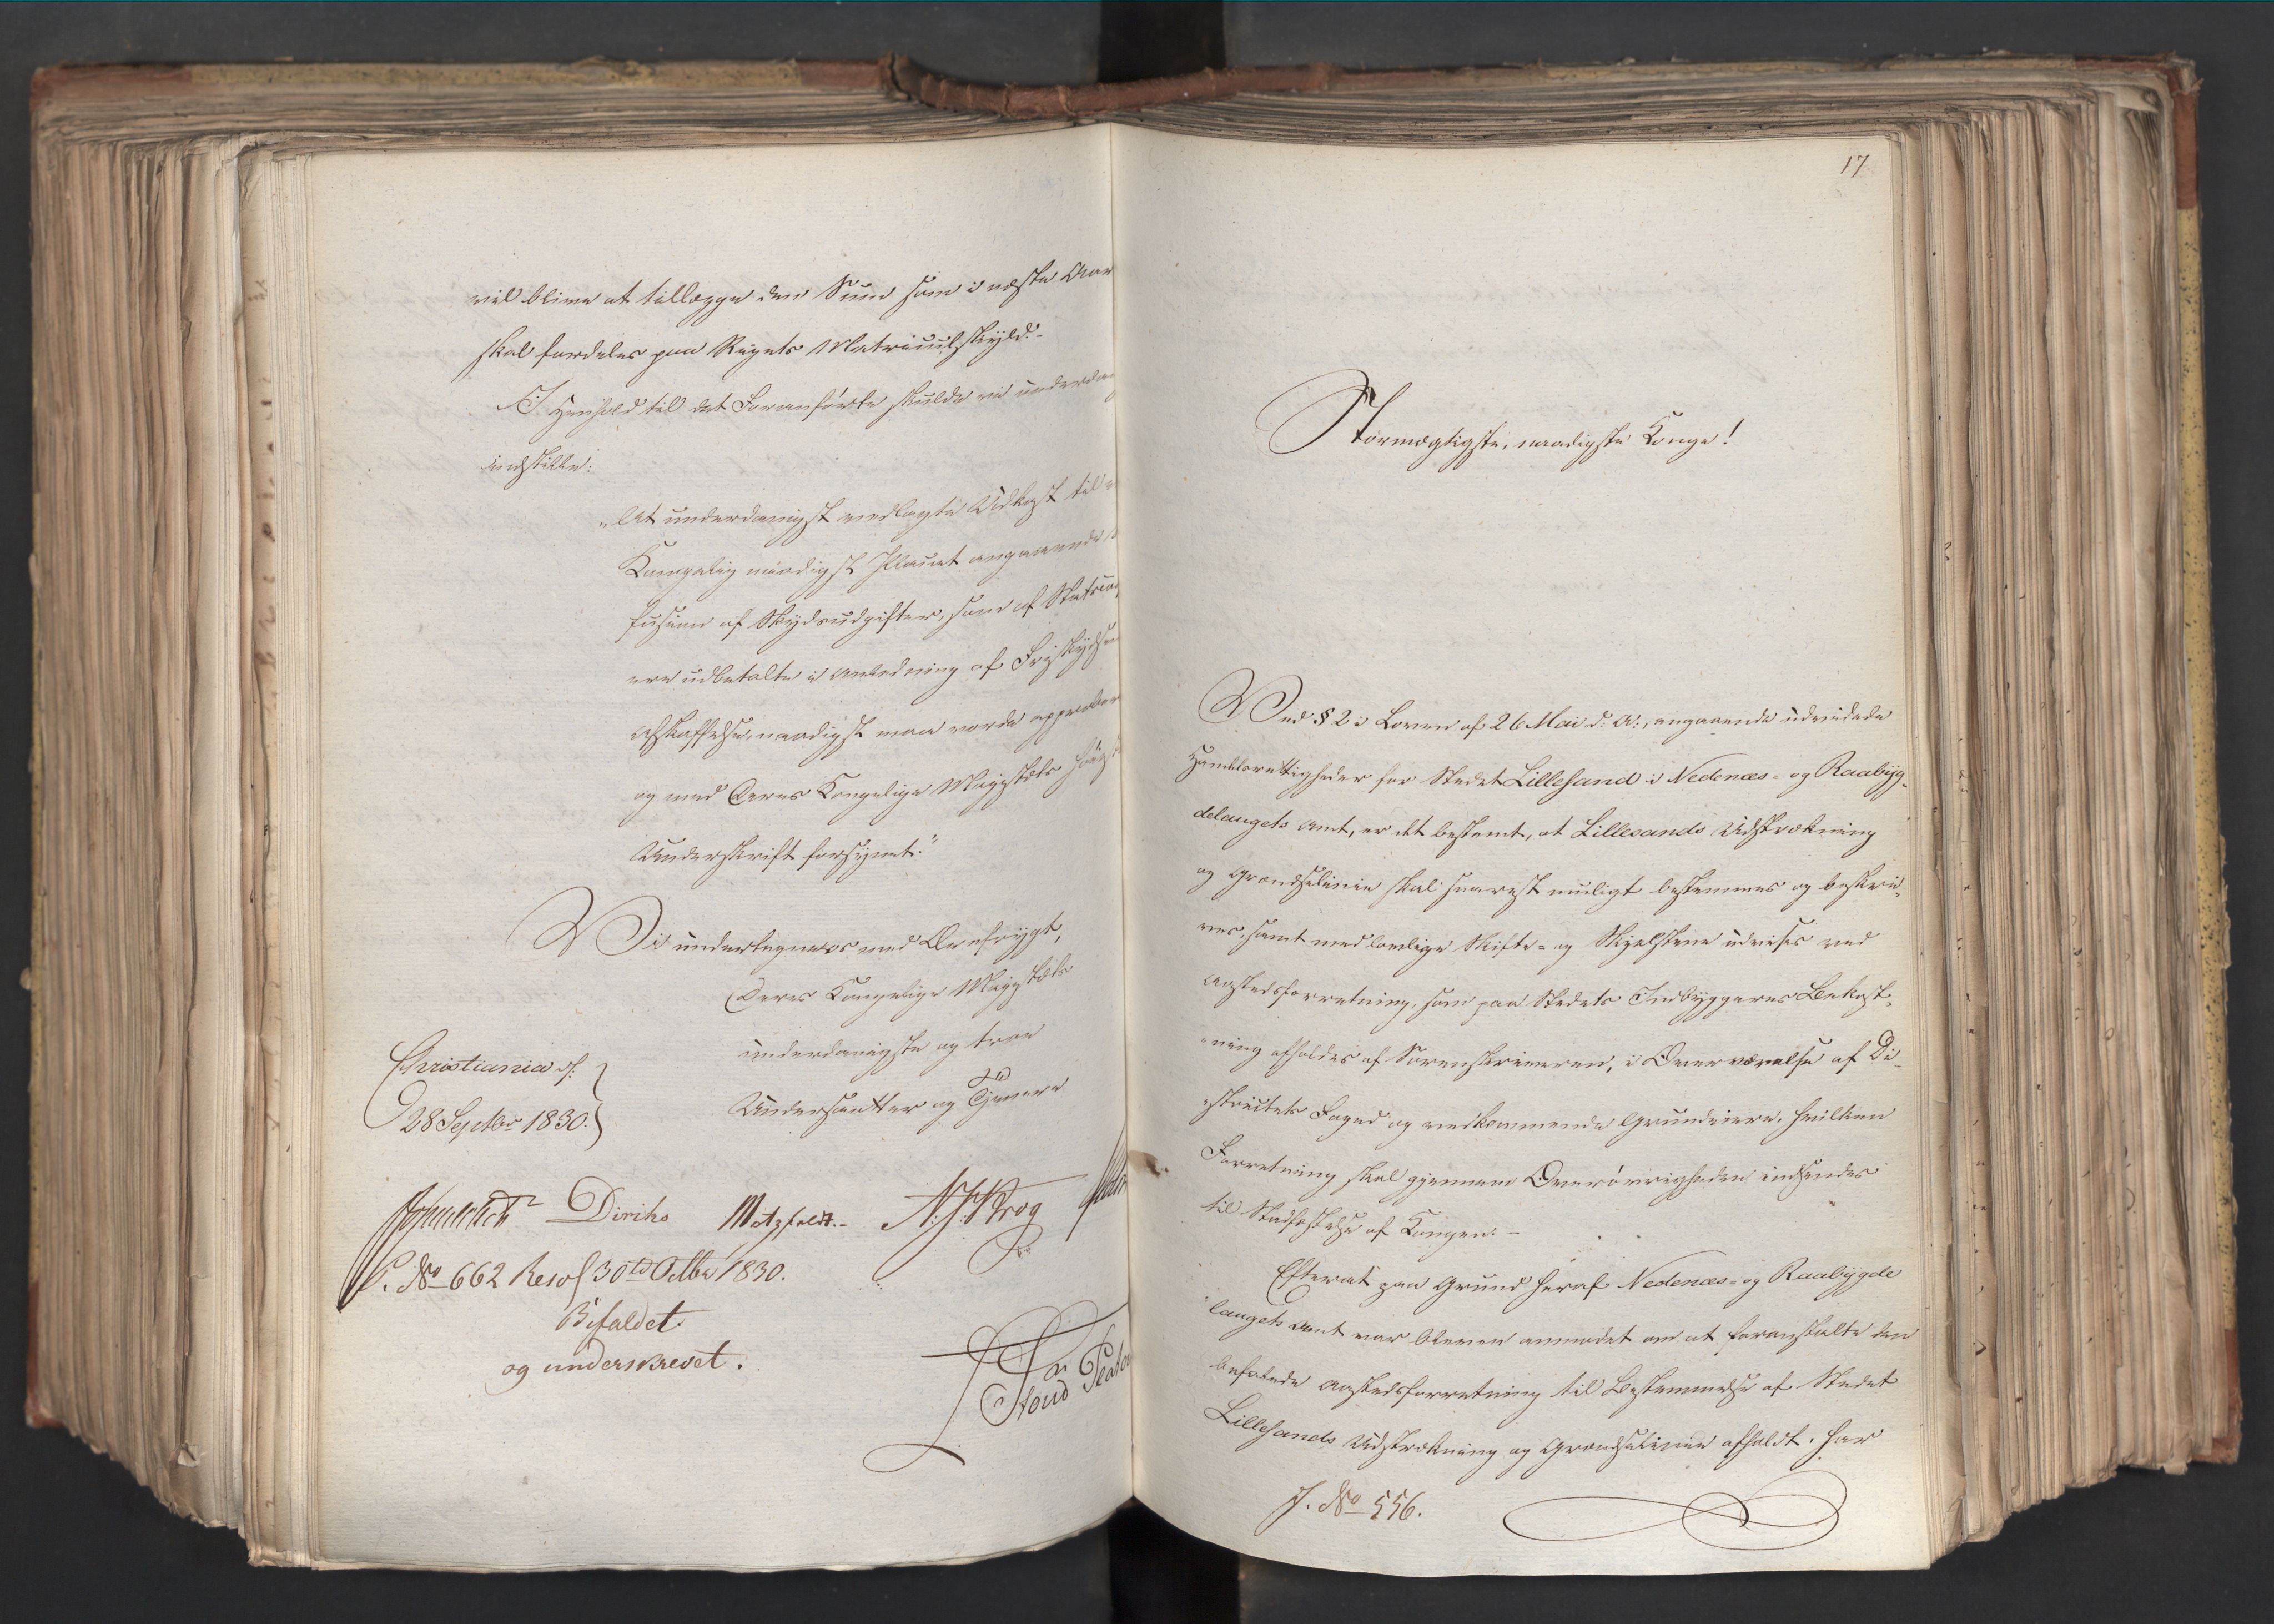 vil blive at tillægge den Sum som i næste Aar
skal fordeles paa Rigets Matriculskyld.-
I Henhold til det Foranførte skulde vi underda
indstille:
"At underdanigst vedlagte Udkast til
Kongelig naadigst Placat angaaende
fusion af Skydsudgifter, som af Statscas
ere udbetalte i Anledning af Friskydsen
Afskaffelse, naadigst maa vorde approber
og med Deres Kongelige Majestæts Høie
Underskrift forsynet."
Vi undertegne os med Ærefrygt,
Deres Kongelige Majestæts
underdanigste og troe
Undersaatter og Tjenere
Christiania d:
28 Septbr 1830.
Diriks Motzfeldt.- N. J. Krog
P. No 662 Resol 30td Octbr 1830.
Bifaldet
og underskrevet.
17
Stormægtigste, naadigste Konge!
Ved § 2 i Loven af 26 Mai d: A:, angaaende udvidede
Handelsrettigheder for Stedet Lillesand i Nedenæs- og Raabyg-
delaugets Amt, er det bestemt, at Lillesands Udstrækning
og Grændselinie skal snarest muligt bestemmes og beskri-
ves, samt med lovlige Skifte- og Skjelstene udvises ved
Aastedsforretning, som paa Stedets Indbyggeres Bekost-
ning afholdes af Sorenskriveren, i Overværelse af Di-
strictets Foged og vedkommende Grundeiere, hvilken
Forretning skal gjennem Overøvrigheden indsendes
til Stadfæstelse af Kongen.-
Efterat paa Grund heraf Nedenæs- og Raabygde
laugets Amt var bleven anmodet om at foranstalte den
befalede Aastedsforretning til Bestemmelse af Stedet
Lillesands Udstrækning og Grændselinie afholdt, har
J. No 556.